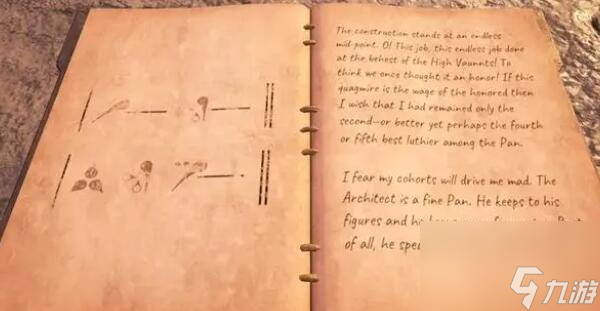 The construction stands at an endless
mid-point. O! This job, this endless job done
at the behest of the High Vaunnts! To
think we once thought it an honor! If this
quagmire is the wage of the honored then
I wish that I had remained only the
second--or better yet perhaps the fourth
or fifth best luthier among the Pan.
I fear my cohorts will drive me mad. The
Architect is a fine Pan. He keeps to his
figures and he
of all, he
九游